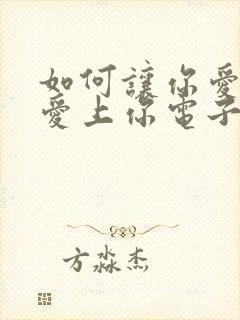 如何讓你愛
愛上你電子
方淼杰